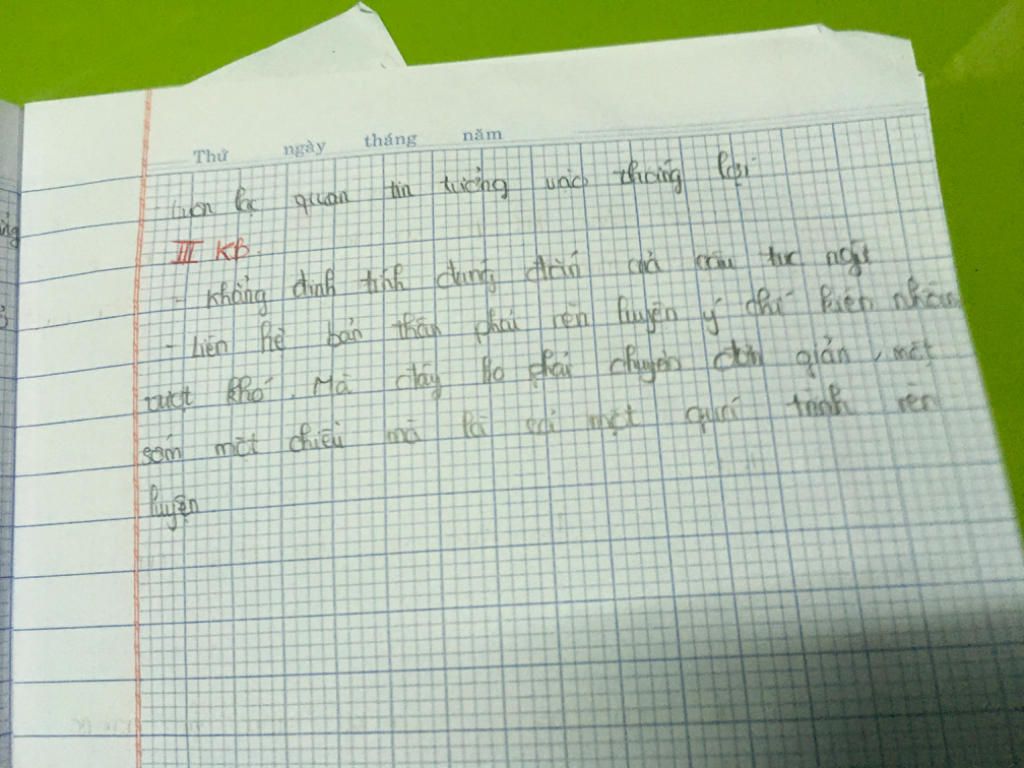 Thứ ngày tháng năm
- Luôn lạc quan tin tưởng vào thắng lợi
III KB.
- Khẳng định tính đúng đắn của câu tục ngữ
- Liên hệ bản thân phải rèn luyện ý chí kiên nhẫn
vượt khó. Mà đây ko phải chuyện đơn giản, một
sớm một chiều mà là cả một quá trình rèn
luyện